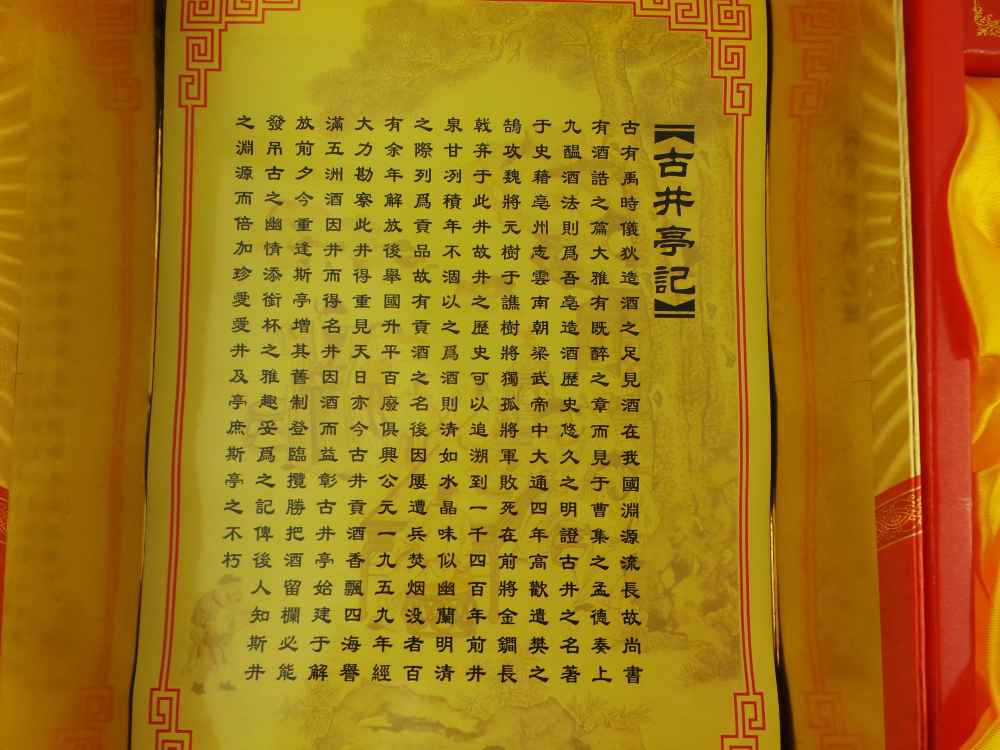 【古井亭記】
古有禹時儀狄造酒之足見酒在我國淵源流長故尚書
有酒誥之篇大雅有既醉之章而見于曹集之孟德奏上
九醖酒法則爲吾亳造酒歷史悠久之明證古井之名著
于史藉亳州志雲南朝梁武帝中大通四年高歡遣樊之
鵠攻魏將元樹于譙樹將獨孤將軍敗死在前將金鐧長
戟弃于此井故井之歷史可以追溯到一千四百年前井
泉甘冽積年不涸以之爲酒則清如水晶味似幽蘭明清
之際列爲貢品故有貢酒之名後因屢遭兵焚烟没者百
有余年解放後舉國升平百廢俱興公元一九五九年經
大力勘察此井得重見天日亦今古井貢酒香飄四海譽
滿五洲酒因井而得名井因酒而益彰古井亭始建于解
放前夕今重達斯亭增其舊制登臨攬勝把酒留欄必能
發吊古之幽情添銜杯之雅趣妥爲之記俾後人知斯井
之淵源而倍加珍愛愛井及亭庶斯亭之不朽